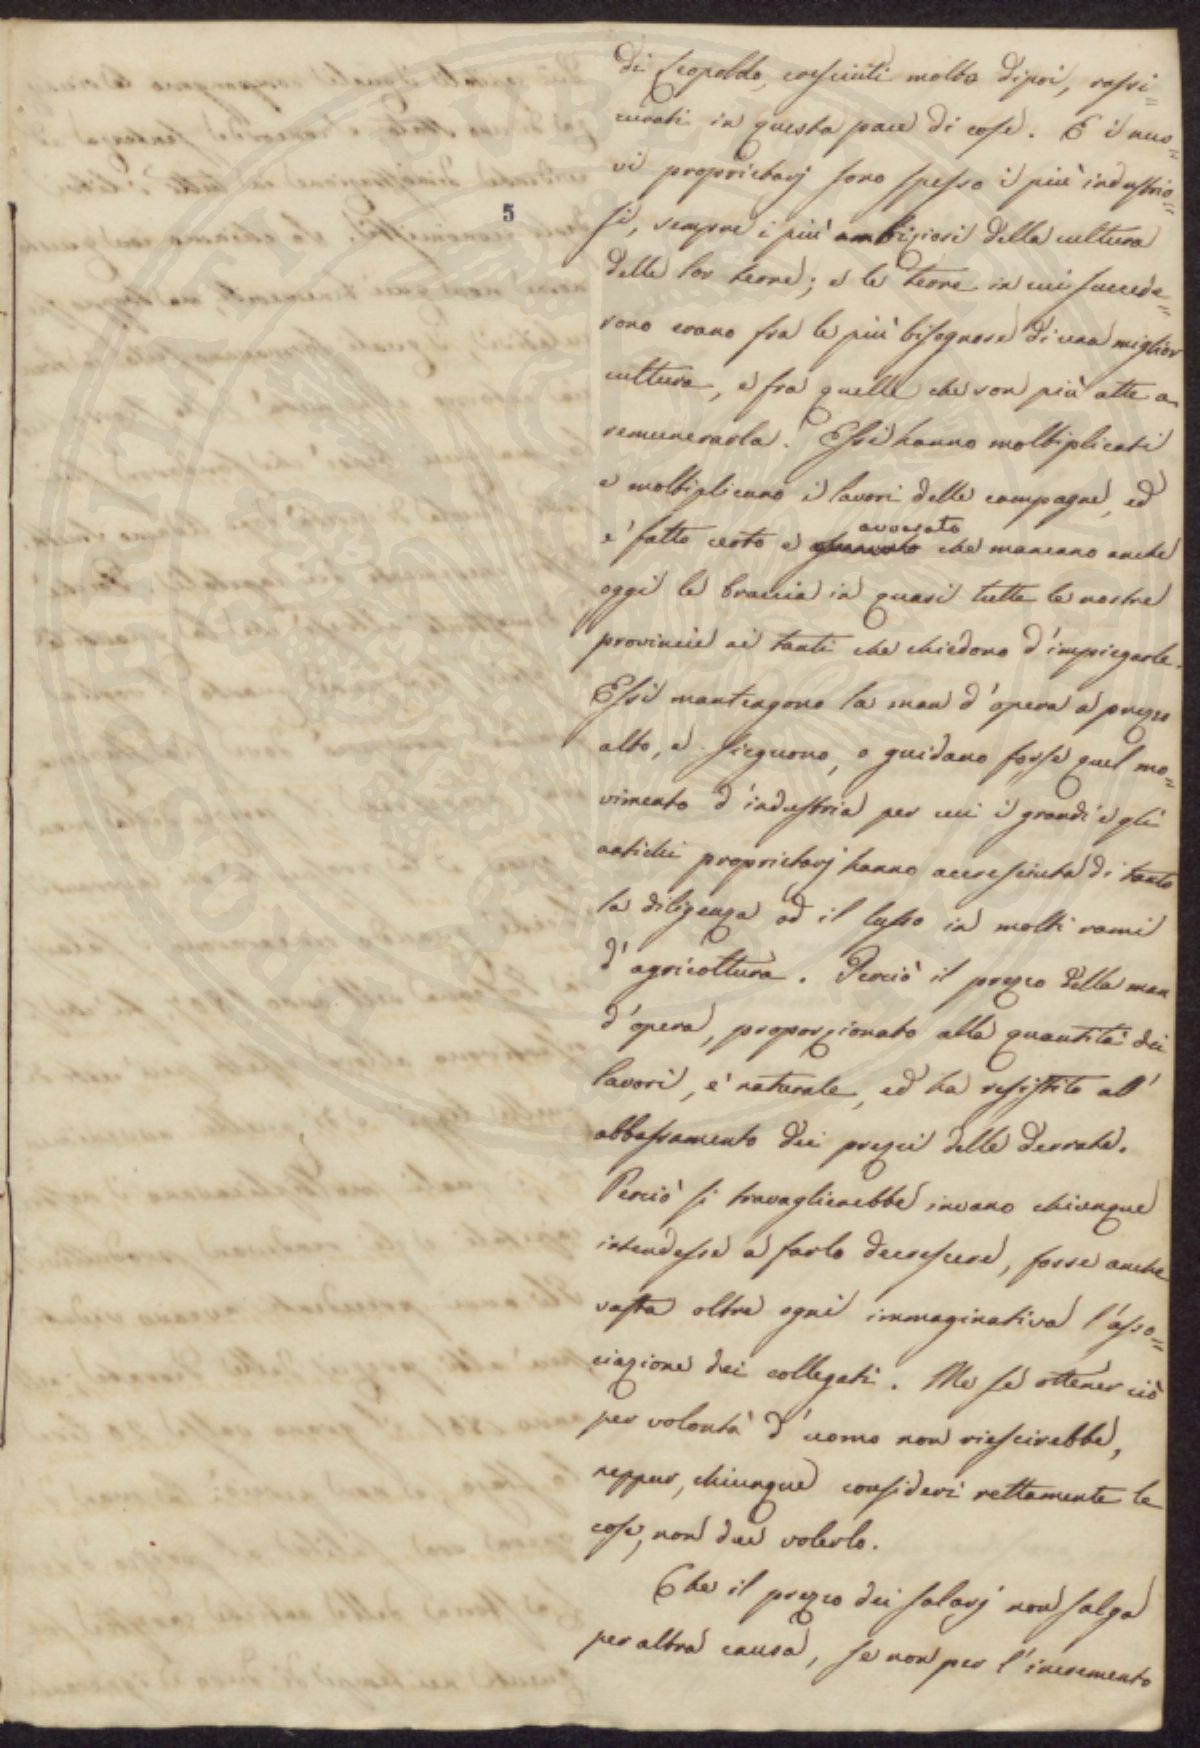 di Leopoldo, cresciuti molto dipoi, rassi=
curati in questa pace di cose. E i nuo=
vi proprietarj sono spesso i più industrio=
5
si, sempre i più ambiziosi della cultura
delle lor terre; e le terre in cui succede=
rono erano fra le più bisognose di una miglior
cultura, e fra quelle che son più atte a
remunerarla. Essi hanno moltiplicati
e moltiplicano i lavori delle campagne, ed
avverato
è fatto certo e che mancano anche
oggi le braccia in quasi tutte le nostre
provincie ai tanti che chiedono d'impiegarle.
Essi mantengono la man d'opera a prezzo
alto, e sieguono, o guidano forse quel mo=
vimento d'industria per cui i grandi e gli
antichi proprietarj hanno accresciuta di tanto
la diligenza ed il lusso in molti rami
d'agricoltura. Perciò il prezzo della man
d'opera, proporzionato alla quantità dei
lavori, è naturale, ed ha resistito all'
abbassamento dei prezzi delle derrate.
Perciò si travaglierebbe invano chiunque
intendesse a farlo decrescere, fosse anche
vasta oltre ogni immaginativa l'asso=
ciazione dei collegati. Ma se ottener ciò
per volontà d'uomo non riescirebbe,
neppur, chiunque consideri rettamente le
cose, non dee volerlo.
Che il prezzo dei salarj non salga
per altra causa, se non per l'incremento